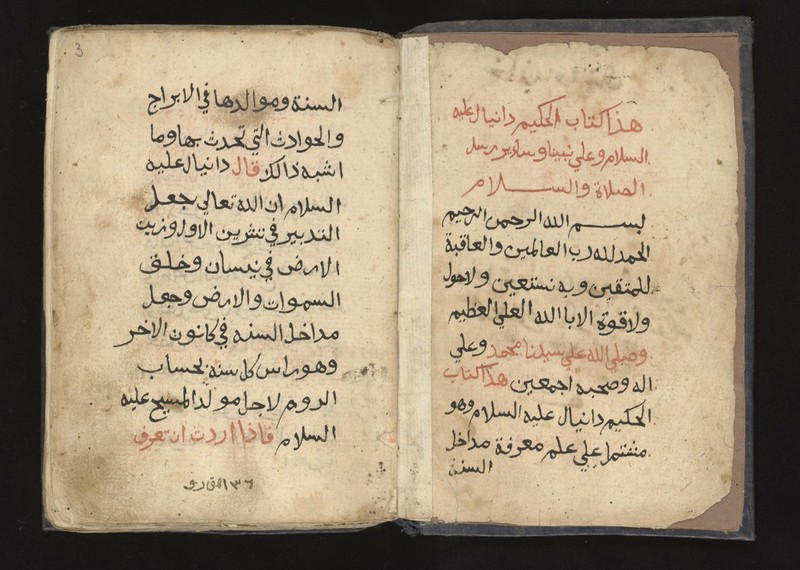 هذا كتاب الحكيم دانيال عليه
السلام وعلي نبينا وساير رسل
الصلاة والســـلام
بســـم الله الرحمن الرحيم
الحمد لله رب العالمين والعاقبة
للمتقين وبه نستعين ولاحول
ولاقوة الا بالله العلي العظيم
وصلي الله علي سيدنا محمد وعلي
اله وصحبه اجمعين هذا كتاب
الحكيم دانيال عليه السلام وهو
مشتمل علي علم معرفة مداخل
السنة
3
السنة وموالدها في الابراج
والحوادث التي تحدث بها وما
اشبه ذالك قال دانيال عليه
السلام ان الله تعالي جعل
التدبير في تشرين الاول وزينت
الارض في نيسان وخلق
السموات والارض وجعل
مداخل السنه في كانون الاخر
وهو راس كل سنة بحساب
الروم لاجل مولد المسيح عليه
السلام فاذا اردت ان تعرف